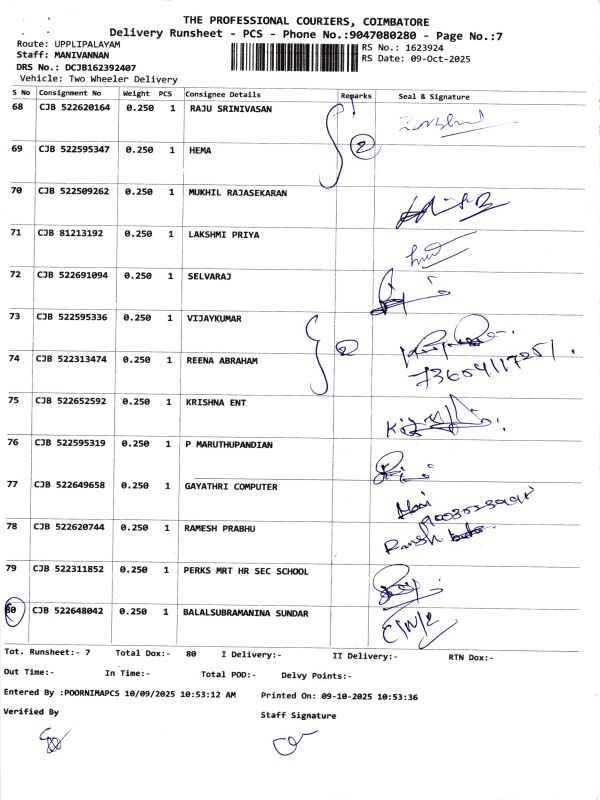 THE PROFESSIONAL COURIERS, COIMBATORE
Delivery Runsheet - PCS - Phone No.:9047080280 - Page No.:7
Route: UPPLIPALAYAM
Staff: MANIVANNAN
DRS No.: DCJB162392407
Vehicle: Two Wheeler Delivery
RS No.: 1623924
RS Date: 09-Oct-2025
S No Consignment No Weight PCS Consignee Details Remarks Seal & Signature
68 CJB 522620164 0.250 1 RAJU SRINIVASAN
2
69 CJB 522595347 0.250 1 HEMA
70 CJB 522509262 0.250 1 MUKHIL RAJASEKARAN
71 CJB 81213192 0.250 1 LAKSHMI PRIYA
72 CJB 522691094 0.250 1 SELVARAJ
73 CJB 522595336 0.250 1 VIJAYKUMAR
2
74 CJB 522313474 0.250 1 REENA ABRAHAM
75 CJB 522652592 0.250 1 KRISHNA ENT
76 CJB 522595319 0.250 1 P MARUTHUPANDIAN
77 CJB 522649658 0.250 1 GAYATHRI COMPUTER
78 CJB 522620744 0.250 1 RAMESH PRABHU
Ramesh
79 CJB 522311852 0.250 1 PERKS MRT HR SEC SCHOOL
80 CJB 522648042 0.250 1 BALALSUBRAMANINA SUNDAR
Tot. Runsheet:- 7 Total Dox:- 80 I Delivery:- II Delivery:- RTN Dox:-
Out Time:- In Time:- Total POD:- Delvy Points:-
Entered By :POORNIMAPCS 10/09/2025 10:53:12 AM Printed On: 09-10-2025 10:53:36
Verified By Staff Signature